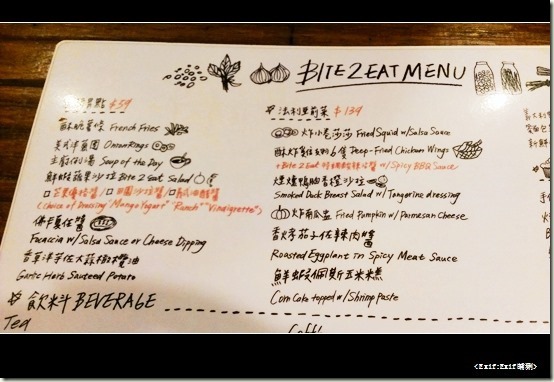 BITE 2 EAT MENU
點 $59
酥脆薯條 French Fries
美式洋蔥圈 Onion Rings
主廚例湯 Soup of the Day
鮮甜蔬果沙拉 Bite 2 Eat Salad
□ 芒果優格醬 □ 田園沙拉醬 □ 油醋醬
(Choice of Dressing "Mango Yogurt" "Ranch" "Vinaigrette")
佛卡夏佐醬
Focaccia w/ Salsa Sauce or Cheese Dipping
香草洋芋佐大蒜橄欖油
Garlic Herb Sauteed Potato
飲料 BEVERAGE
Tea
法利里前菜 $139
炸小卷莎莎 Fried Squid w/ Salsa Sauce
6隻 Deep-Fried Chicken Wings
+ Bite 2 Eat 特調辣味醬 w/ Spicy BBQ Sauce
煙燻鴨胸香橙沙拉
Smoked Duck Breast Salad w/ Tangerine dressing
炸南瓜 Fried Pumpkin w/ Parmesan Cheese
香烤茄子佐辣肉醬
Roasted Eggplant in Spicy Meat Sauce
鮮蝦玉米
Corn Cake topped w/ Shrimp Paste
Coff
<Exif:Exif瞄測>